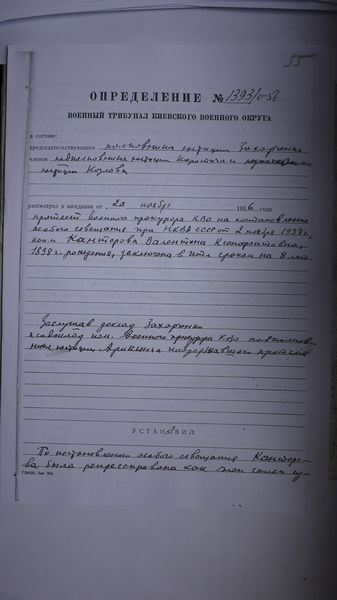 55
ОПРЕДЕЛЕНИЕ № 1393/о-56
ВОЕННЫЙ ТРИБУНАЛ КИЕВСКОГО ВОЕННОГО ОКРУГА
в составе:
председательствующего полковника юстиции Захорженко
членов подполковника юстиции и подполковника
юстиции Козлова
рассмотрел в заседании от „20 ноября 1956 года
протест военного прокурора КВО на постановление
особого совещания при НКВД СССР от 2 ноября 1937 г.,
коим Кантерова Валентина Ксенофонтовна,
1898 г. рождения, заключена в ИТЛ сроком на 8 лет.
Заслушав доклад Захорженко
и пом. Военного прокурора КВО подполков-
ника юстиции поддержавшего протест
УСТАНОВИЛ:
По постановлению особого совещания Кантеро-
ва была репрессирована как член семьи из-